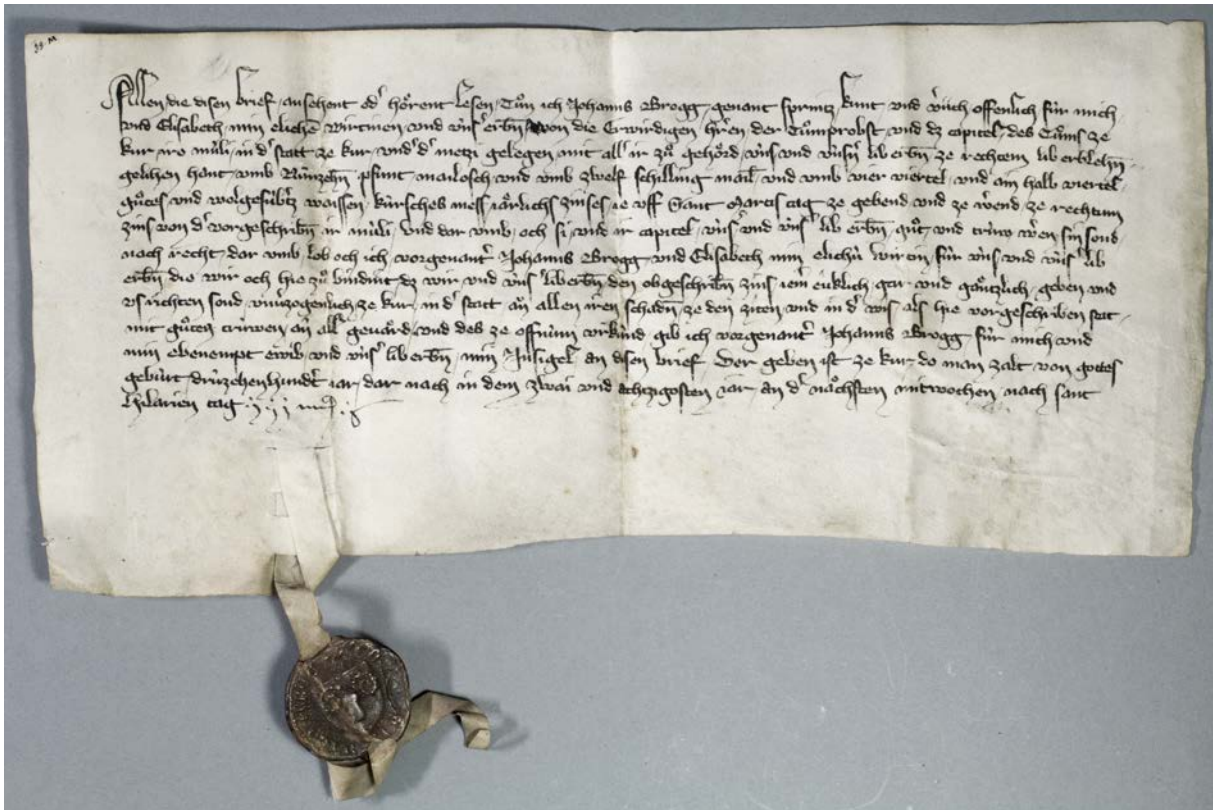 39. M
Allen die disen brief ansehent od' hoͤrent lesen, Tuͦn ich Johanns Brogg, genant sprintz kunt vnd v̓ich offenlich fuͤr mich
vnd Elisabeth min elichē wirtinen vnd v̓ns' erbn̄ won die Erwirdigen h'ren der Tuͦmprobst, vnd dz capitel des Tuͦms ze
kur iro muͤli in d' statt ze kur vnd' d' metzi gelegen mit all' ir zuͦ gehoͤrd v̓ns vnd v̓nsn̄ lib erbn̄ ze rechtem lib erblehn̄
gelihen hant vmb Nuͤnzehn̄ pfunt mailesch vnd vmb zwelf schilling mail' vnd vmb vier viertel vnd ain halb viertel
guͦtes vnd wolgesuͤbtz waissen kuͤrsches mess iaͤrlichs zinses ie vff Sant Martis tag ze gebend vnd ze w'end ze rechtem
zins von d' vorgeschribn̄ ir muͤli, vnd dar vmb och si vnd ir capitel v̓ns' vnd v̓ns' lib erbn̄ guͦt vnd trúw w'en sin sond
nach recht dar vmb lob och ich vorgenant' Johanns Brogg vnd Elisabeth min elichuͤ wirtin fuͤr v̓ns vnd v̓ns' lib
erbn̄ die wir och hie zuͦ bindint dz wir vnd v̓ns' liberbn̄ den obgeschribn̄ zins iem' eweklich gar vnd gaͤntzlich geben vnd
vs richten sond vnuerzogenlich ze kur in d' statt aͤn allen iren schadn̄ ze den ziten vnd in d' wis als hie vorgeschriben stat
mit guͦten trúwen aͤn all' geuaͤrd, vnd des ze offnem vrkuͤnd gib ich vorgenant' Johanns Brogg fuͤr mich vnd
min ebenempt ewib vnd v̓ns' liberbn̄ min Insigel an disen brief Der geben ist ze kur do man zalt von gottes
gebuͤrt druͤzehenhund't iar dar nach in dem zwai vnd achtzigosten iar an d' naͤchsten mitwochen nach sant
Hilarien tag